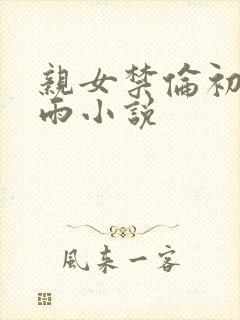 親女禁倫初
雨小説
風来一客